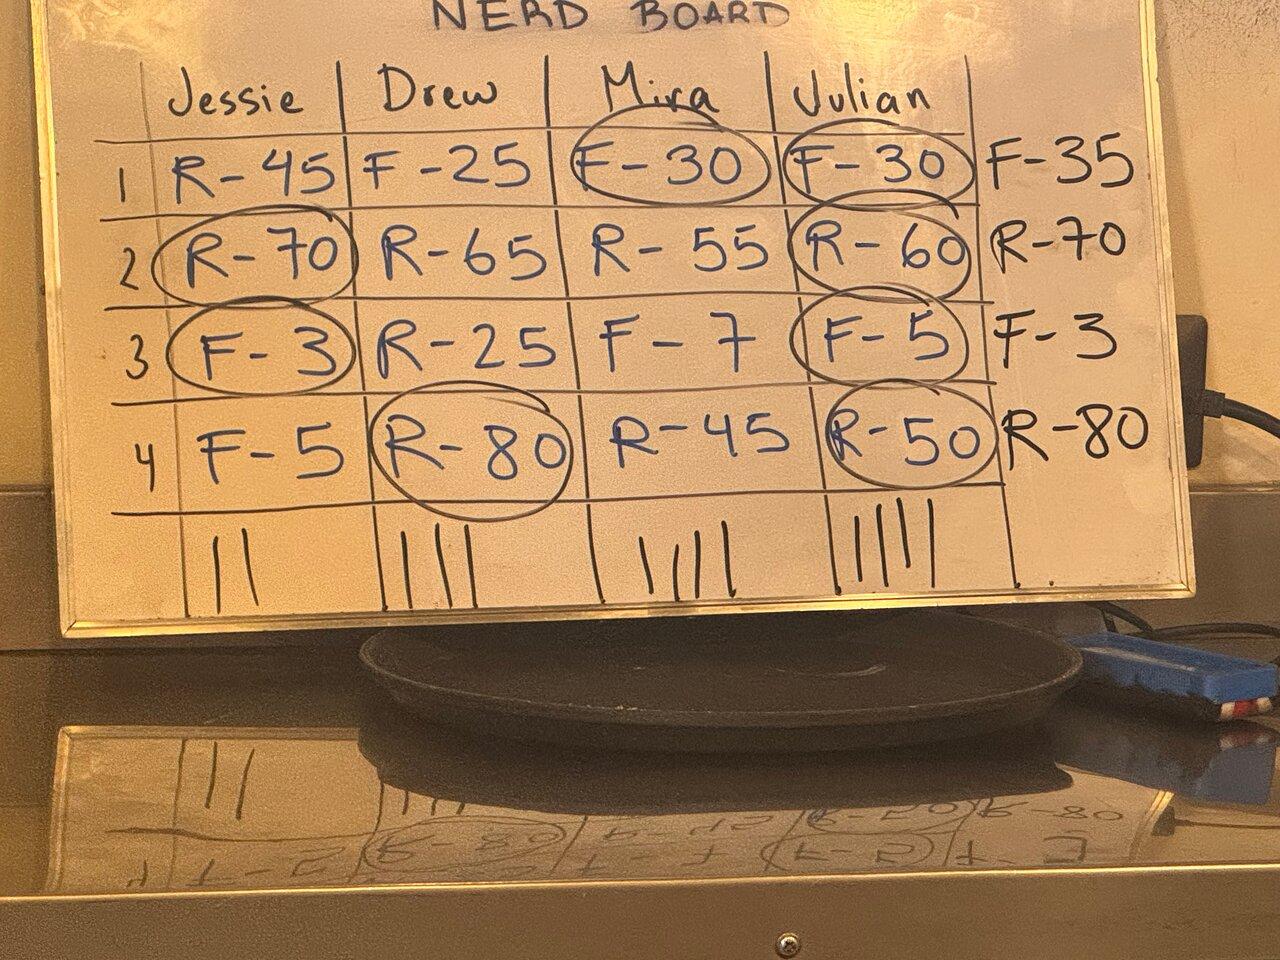 NERD BOARD
Jessie Drew Mira Julian
1 R-45 F-25 F-30 F-30 F-35
2 R-70 R-65 R-55 R-60 R-70
3 F-3 R-25 F-7 F-5 F-3
4 F-5 R-80 R-45 R-50 R-80
|| |||| |||| ||||